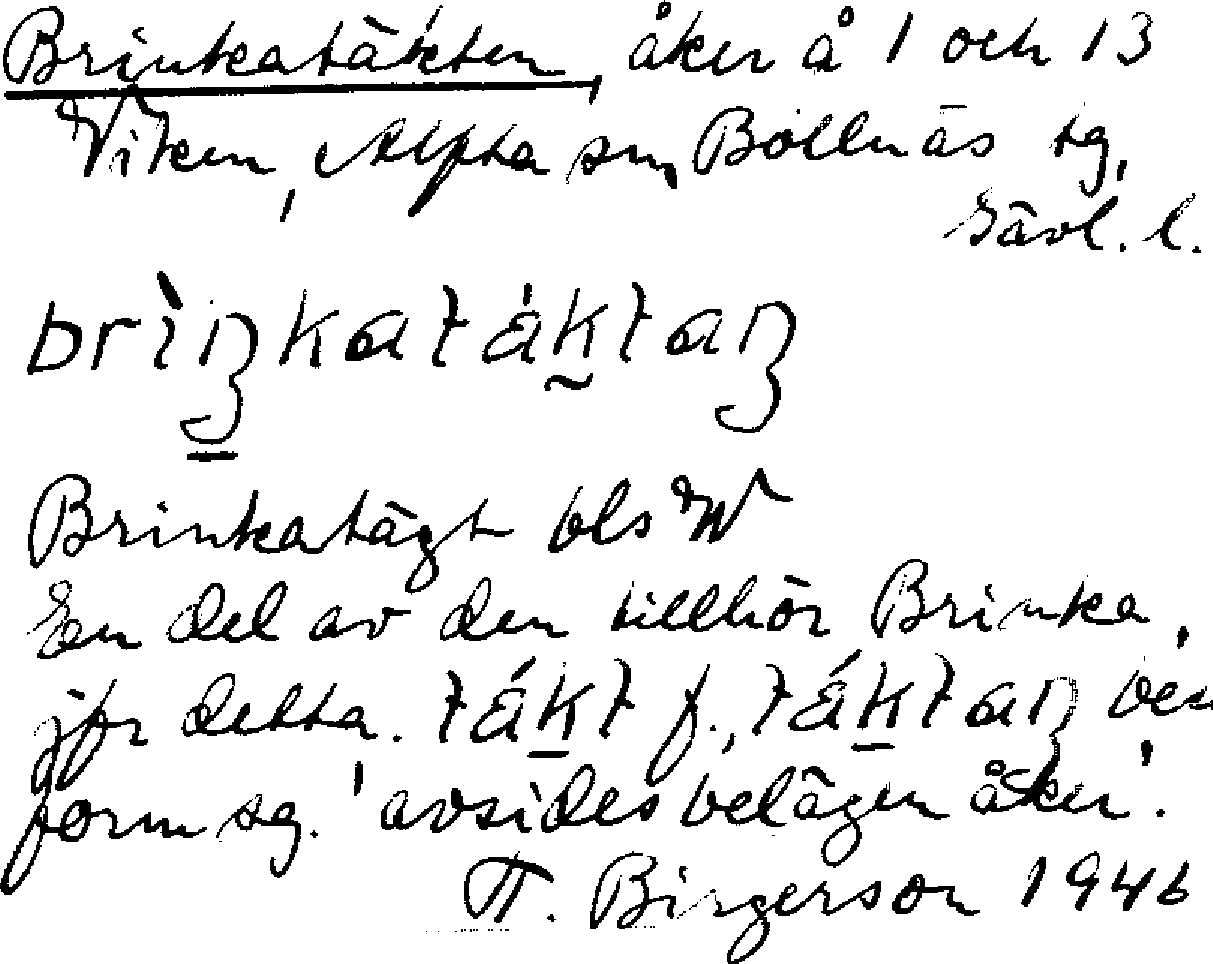 Brinkatäkten, åker å 1 och 13
Viken, Alfta sn, Bollnäs tg,
Gävl. l.
brìŋkatáktaŋ
Brinkatägt bls W
En del av den tillhör Brinka,
jfr detta. tákt f., táktaŋ best.
form sg. 'avsides belägen åker'.
T. Birgerson 1946